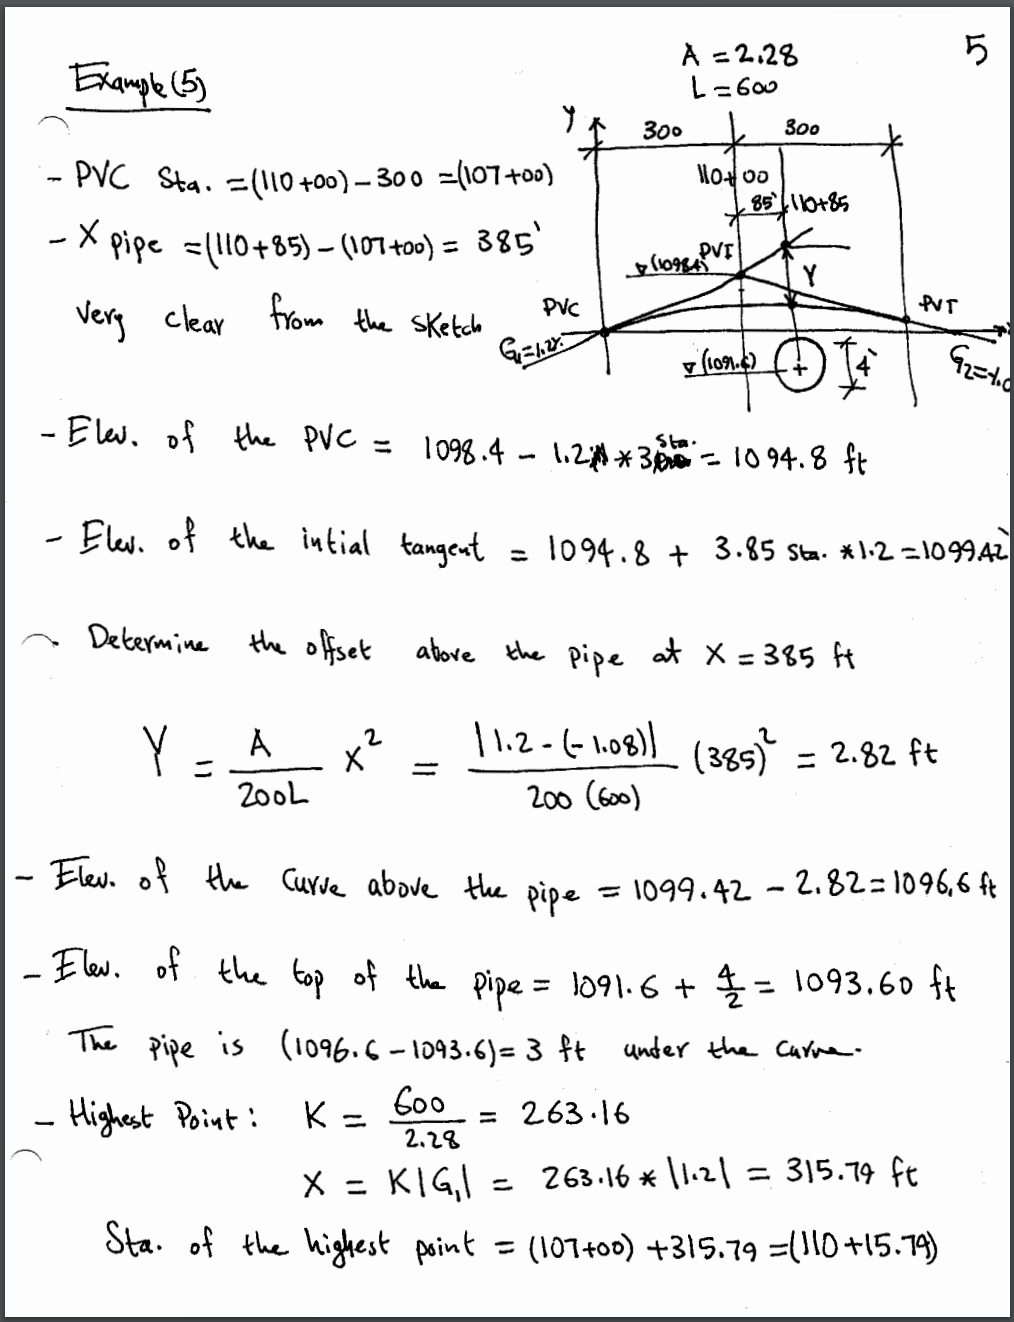 5
Example (5)
A = 2.28
L = 600
Y
300 300
110+00
85' 110+85
PVI
▽(1098.4)
Y
PVC
PVT
G₁=1.2%
▽(1091.6)
4'
- PVC Sta. = (110+00) - 300 = (107+00)
- X pipe = (110+85) - (107+00) = 385'
Very clear from the sketch
- Elev. of the PVC = 1098.4 - 1.2 * 3 Sta. = 1094.8 ft
- Elev. of the intial tangent = 1094.8 + 3.85 Sta. * 1.2 = 1099.42'
- Determine the offset above the pipe at X = 385 ft
Y = A/200L X² = |1.2 - (-1.08)|/200 (600) (385)² = 2.82 ft
- Elev. of the Curve above the pipe = 1099.42 - 2.82 = 1096.6 ft
- Elev. of the top of the pipe = 1091.6 + 4/2 = 1093.60 ft
The pipe is (1096.6 - 1093.6) = 3 ft under the curve.
- Highest Point: K = 600/2.28 = 263.16
X = K|G₁| = 263.16 * |1.2| = 315.79 ft
Sta. of the highest point = (107+00) + 315.79 = (110+15.79)